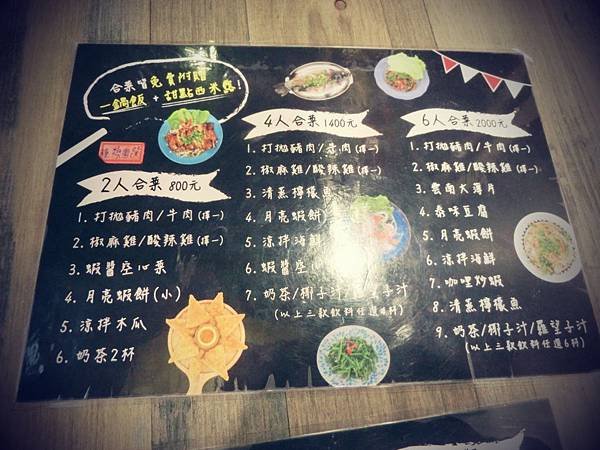 合菜皆免費附贈
一鍋飯 + 甜點西米露!
2人合菜 800元
1. 打拋豬肉/牛肉(擇一)
2. 椒麻雞/酸辣雞(擇一)
3. 蝦醬空心菜
4. 月亮蝦餅(小)
5. 涼拌木瓜
6. 奶茶2杯
4人合菜 1400元
1. 打拋豬肉/牛肉(擇一)
2. 椒麻雞/酸辣雞(擇一)
3. 清蒸檸檬魚
4. 月亮蝦餅
5. 涼拌海鮮
6. 蝦醬空心
7. 奶茶/椰子汁/羅望子汁
(以上三款飲料任選4杯)
6人合菜 2000元
1. 打拋豬肉/牛肉(擇一)
2. 椒麻雞/酸辣雞(擇一)
3. 雲南大薄片
4. 泰味豆腐
5. 月亮蝦餅
6. 涼拌海鮮
7. 咖哩炒蝦
8. 清蒸檸檬魚
9. 奶茶/椰子汁/羅望子汁
(以上三款飲料任選6杯)